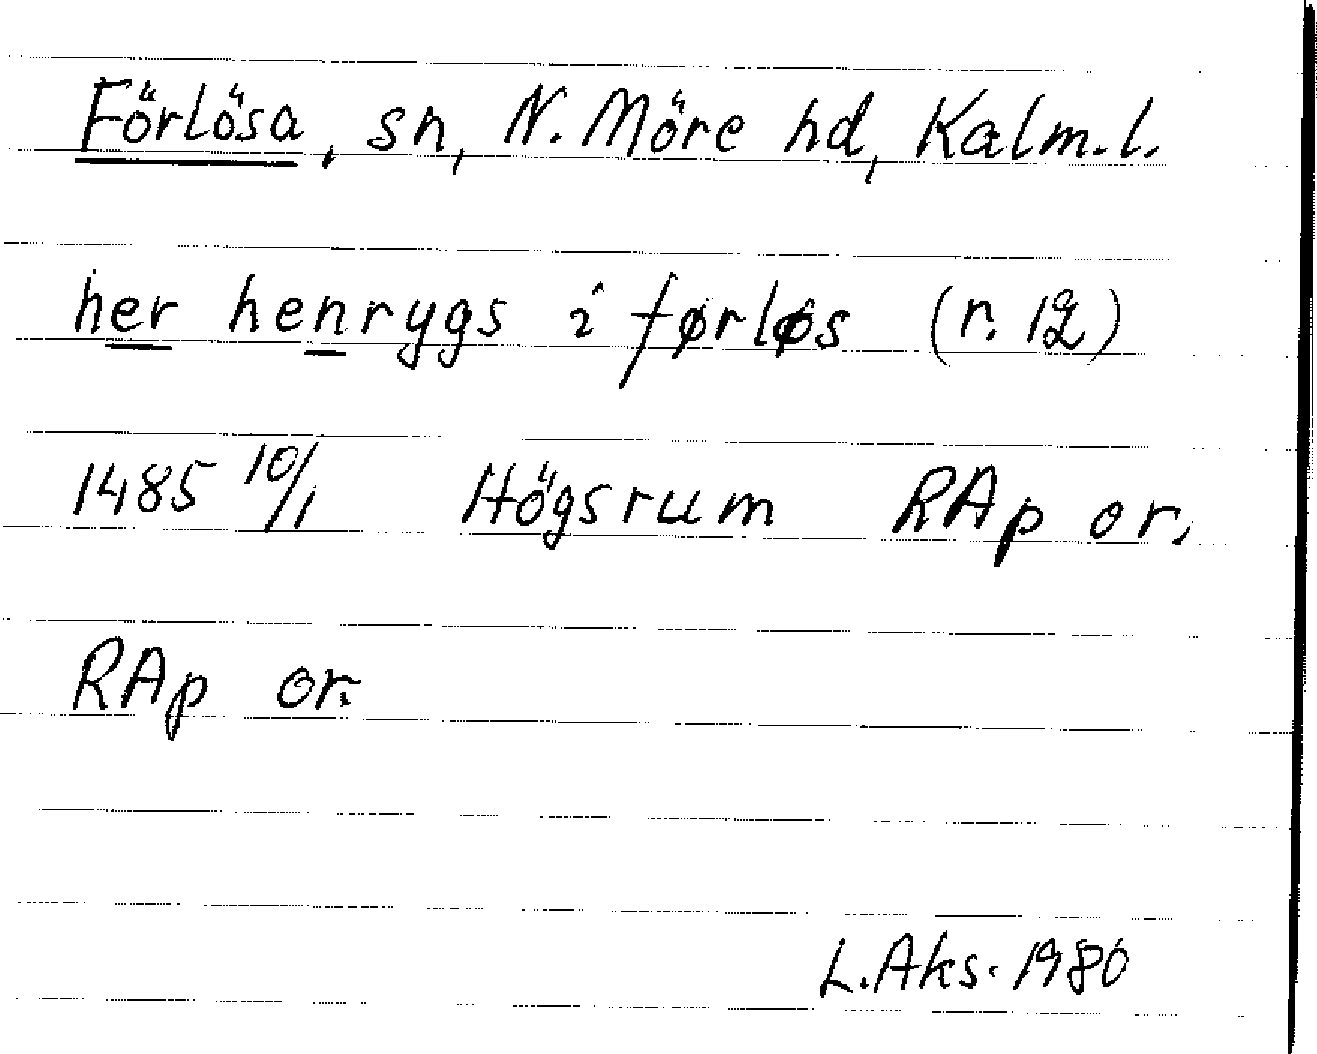 Förlösa, sn, N. Möre hd, Kalm. l.
her henrygs i førløs (r. 12)
1485 10/1 Högsrum RAp or.
RAp or.
L. Aks. 1980